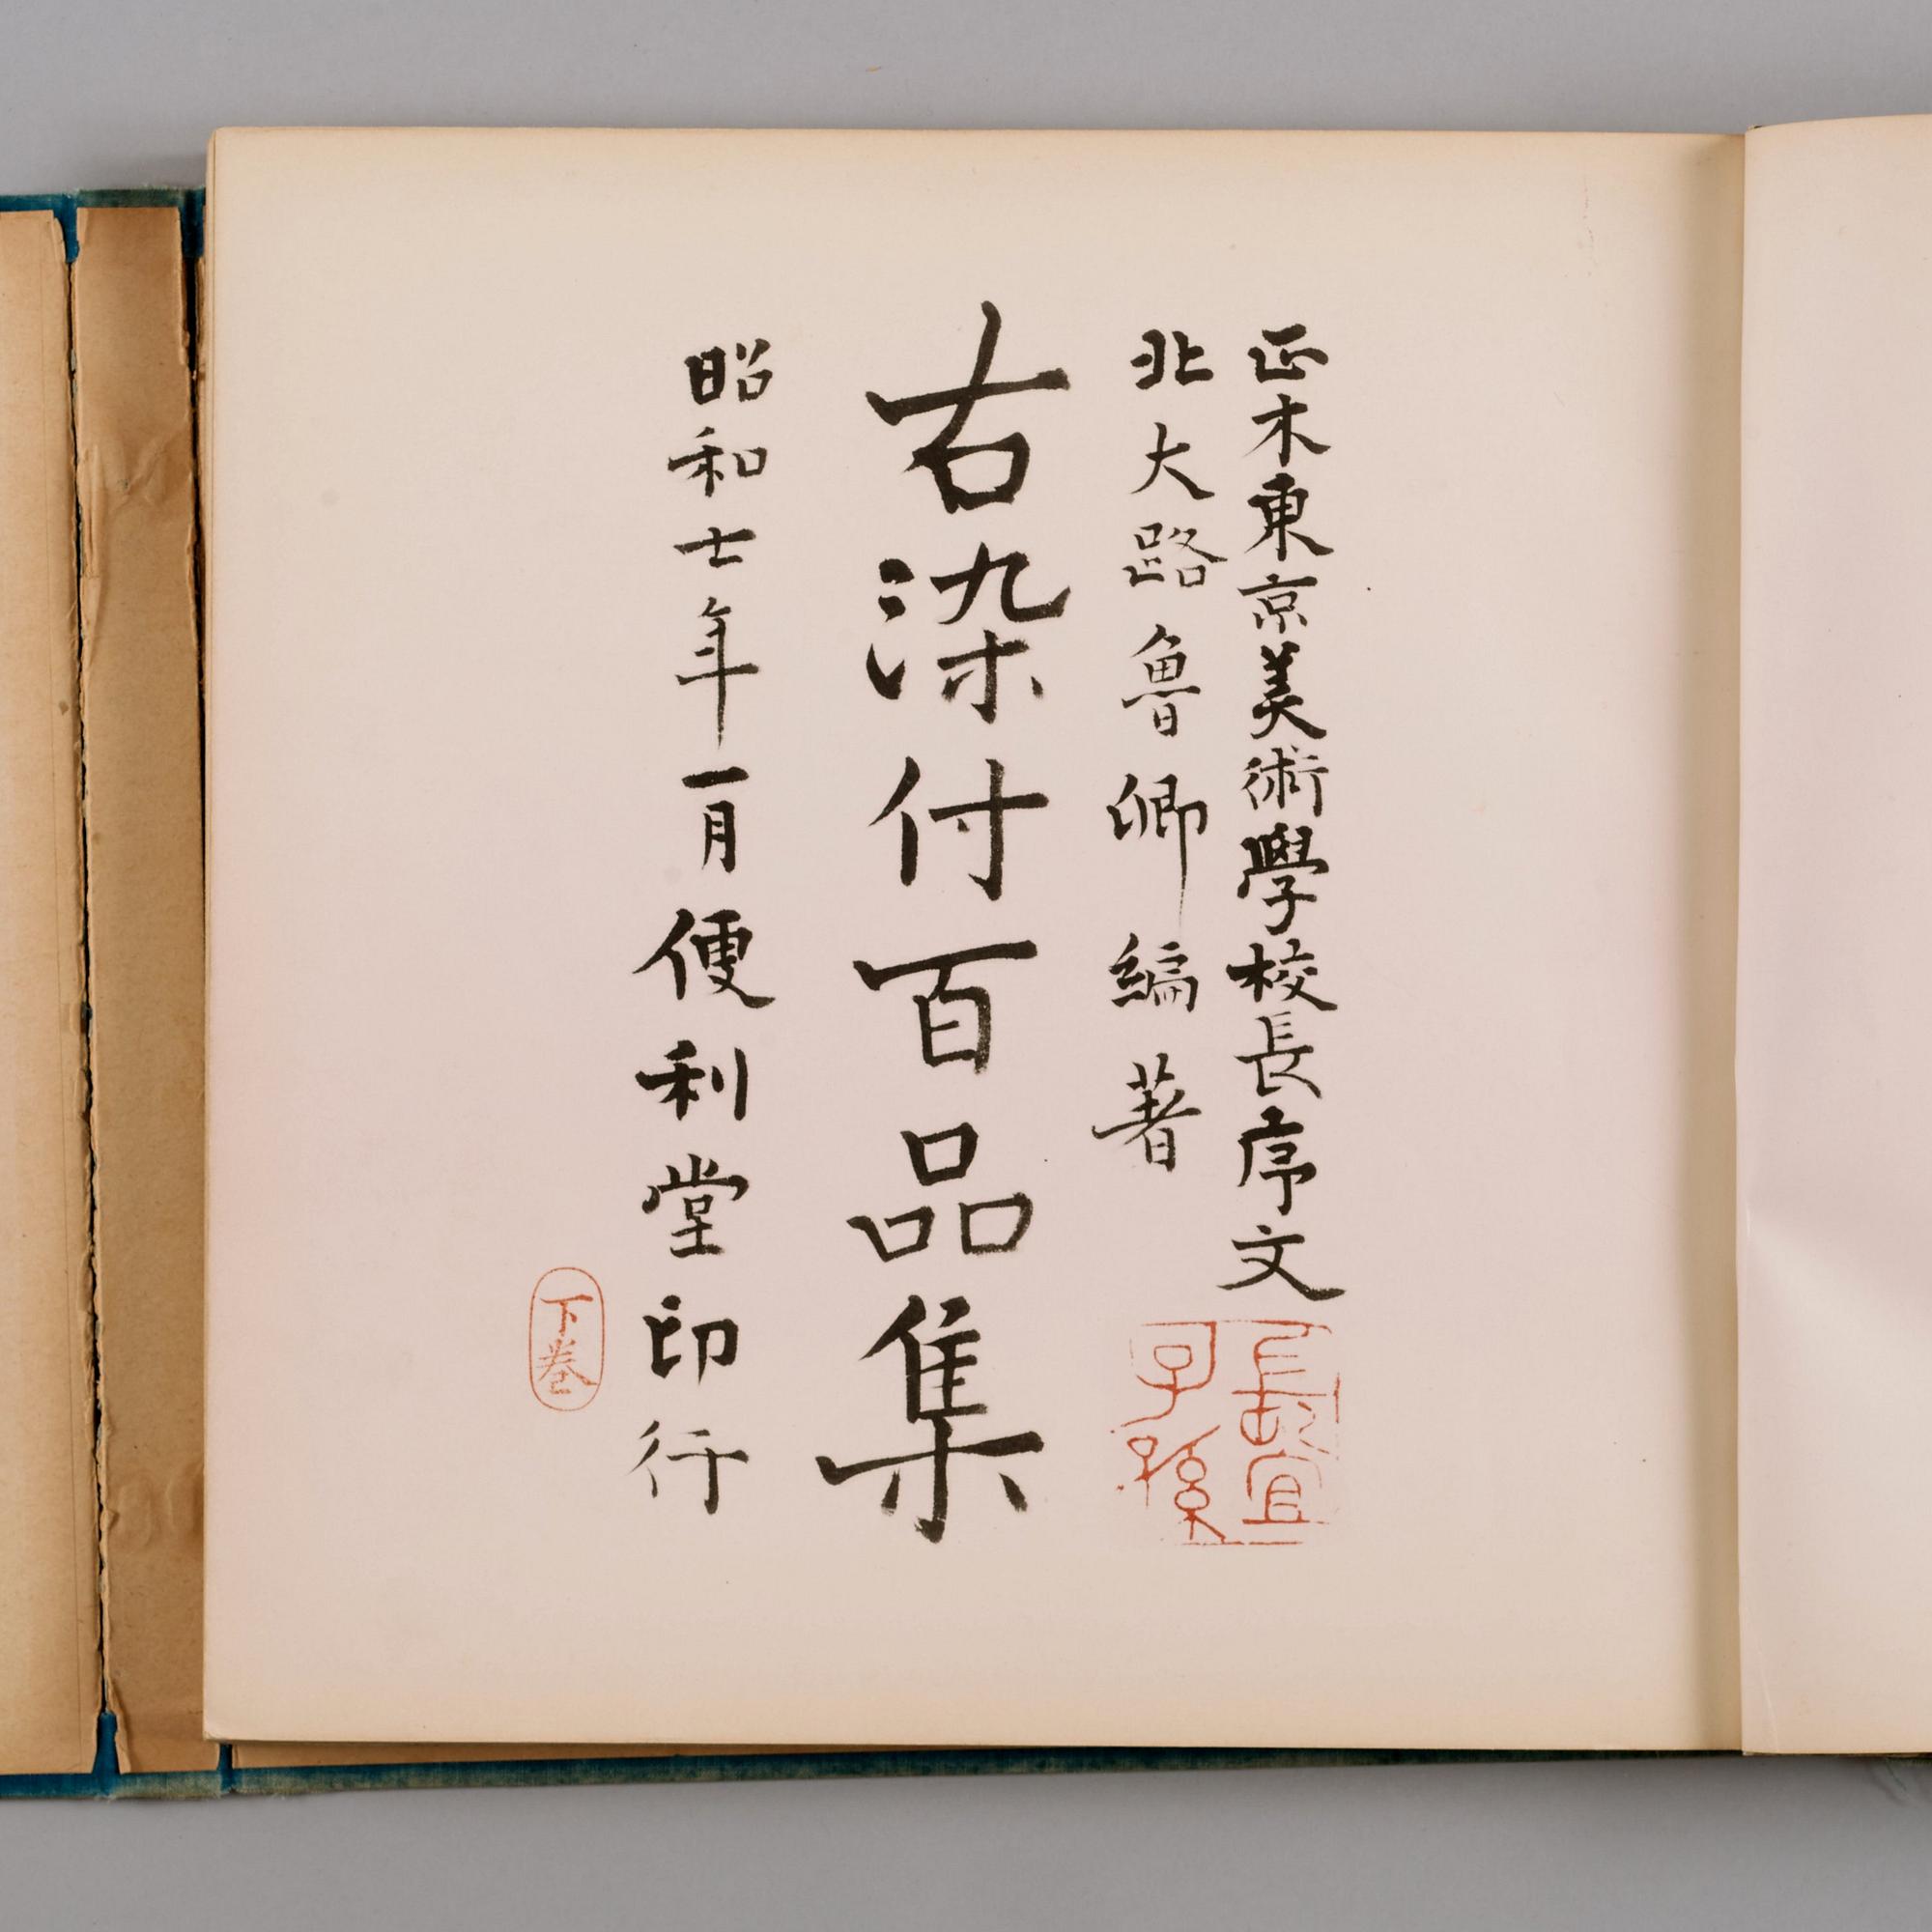 正木東京美術學校長序文
北大路魯卿編著
長宜
子孫
古染付百品集
昭和七年一月便利堂印行
下巻